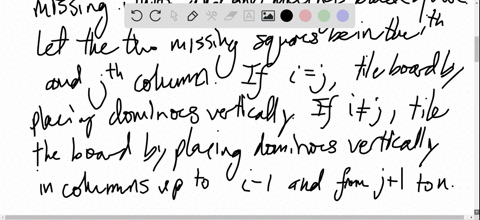 missing
Let the two missing squares be in the ith
and jth column. If i=j, tile board by
placing dominoes vertically. If i≠j, tile
the board by placing dominoes vertically
in columns up to i-1 and from j+1 to n.